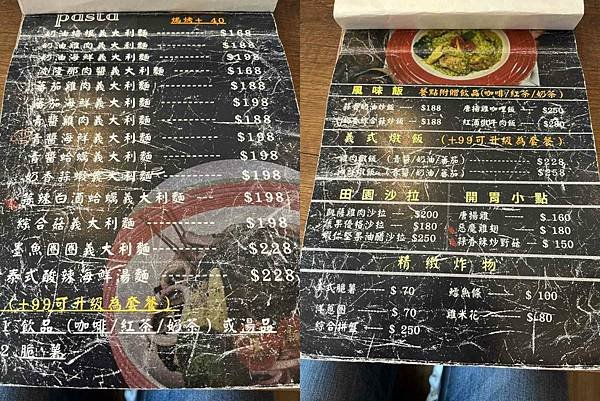 pasta 焗烤+ 40
奶油培根義大利麵 $168
奶油雞肉義大利麵 $168
奶油海鮮義大利麵 $198
肉醬義大利麵 $168
蕃茄雞肉義大利麵 $188
蕃茄海鮮義大利麵 $198
青醬雞肉義大利麵 $188
青醬海鮮義大利麵 $198
青醬蛤蠣義大利麵 $198
奶香蒜蝦義大利麵 $198
蒜辣白酒蛤蠣義大利麵 $198
綜合菇義大利麵 $198
墨魚圈圈義大利麵 $228
泰式酸辣海鮮湯麵 $228
(+99可升級為套餐)
1.飲品(咖啡/紅茶/奶茶)或湯品
2.脆薯
風味飯 餐點附贈飲品(咖啡/紅茶/奶茶)
蒜香奶油炒飯 $188 唐揚雞咖哩飯 $250
奶香綜合菇炒飯 $188 紅酒燉牛肉飯 $280
義式燉飯 (+99可升級為套餐)
雞肉燉飯 (青醬/奶油/蕃茄) $228
海鮮燉飯 (青醬/奶油/蕃茄) $258
田園沙拉 開胃小點
凱薩雞肉沙拉 $200 唐揚雞 $160
蔬果優格沙拉 $180 惡魔雞翅 $180
蝦仁堅果油醋沙拉 $250 蒜香辣炒野菇 $150
精緻炸物
美式脆薯 $70 鱈魚條 $100
洋蔥圈 $70 雞米花 $80
綜合拼盤 $250